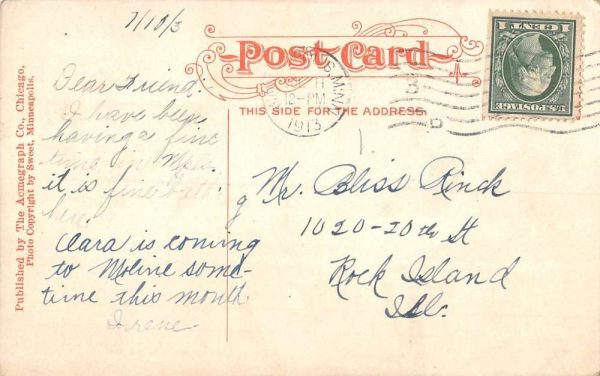 7/10/3
Post Card
THIS SIDE FOR THE ADDRESS
1 CENT 1
U.S. POSTAGE
MINN.
12-PM
1913
Published by The Acmegraph Co., Chicago,
Photo Copyright by Sweet, Minneapolis.
Dear Friend.
I have been
having a fine
time in
it is fine
here.
Clara is coming
to Moline some-
time this month
Irene.
Mr. Bliss Rinck
1020-20th St
Rock Island
Ill.